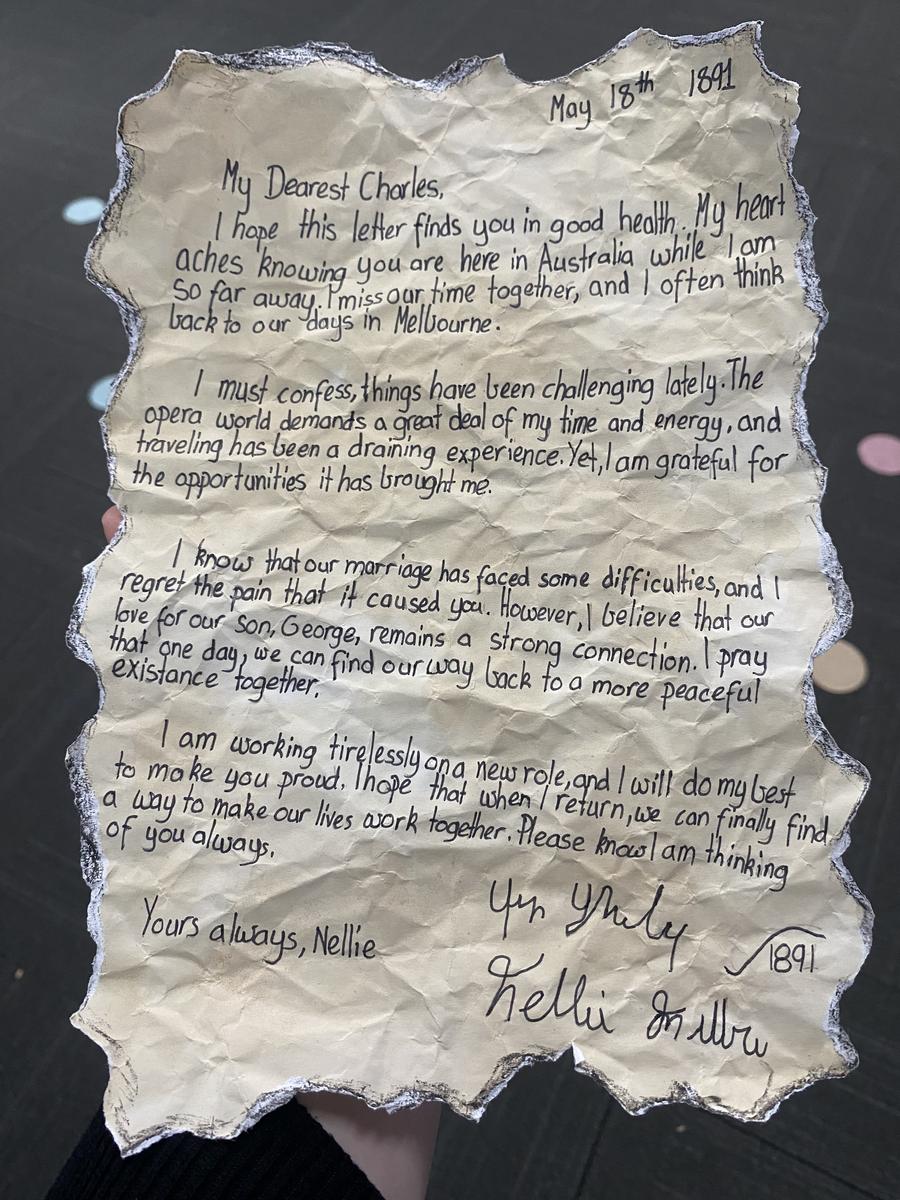 May 18th 1891
My Dearest Charles,
I hope this letter finds you in good health. My heart
aches knowing you are here in Australia while I am
so far away. I miss our time together, and I often think
back to our days in Melbourne.
I must confess, things have been challenging lately. The
opera world demands a great deal of my time and energy, and
traveling has been a draining experience. Yet, I am grateful for
the opportunities it has brought me.
I know that our marriage has faced some difficulties, and I
regret the pain that it caused you. However, I believe that our
love for our son, George, remains a strong connection. I pray
that one day, we can find our way back to a more peaceful
existance together.
I am working tirelessly on a new role, and I will do my best
to make you proud. I hope that when I return, we can finally find
a way to make our lives work together. Please know I am thinking
of you always.
Yours always, Nellie
Truly
1891
Nellie